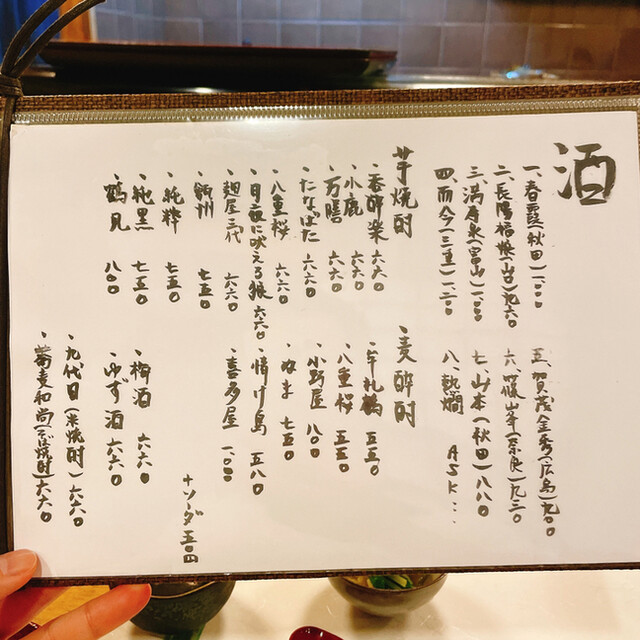 酒
一、春霞(秋田)一.〇〇〇
二、長陽福娘(山口)九六〇
三、満寿泉(富山)一.〇〇〇
四、而今(三重)一.二〇〇
五、賀茂金秀(広島)九〇〇
六、篠峯(奈良)九三〇
七、山本(秋田)八八〇
八、熱燗 ASK...
芋焼酎
・呑酔楽 六六〇
・小鹿 六六〇
・万膳 六六〇
・たなばた 六六〇
・八重桜 六六〇
・月夜に吠える狼 六六〇
・麹屋三代 六六〇
・飫州 七五〇
・純粋 七五〇
・純黒 七五〇
・鶴見 八〇〇
・麦酔酎
・羊札鶴 五五〇
・八重桜 五五〇
・小野屋 八〇〇
・ぬま 七五〇
・情け島 五八〇
・喜多屋 一.〇〇〇
+ソーダ 五〇円
・梅酒 六六〇
・ゆず酒 六六〇
・九代目(米焼酎)六六〇
・蕎麦和尚(そば焼酎)六六〇